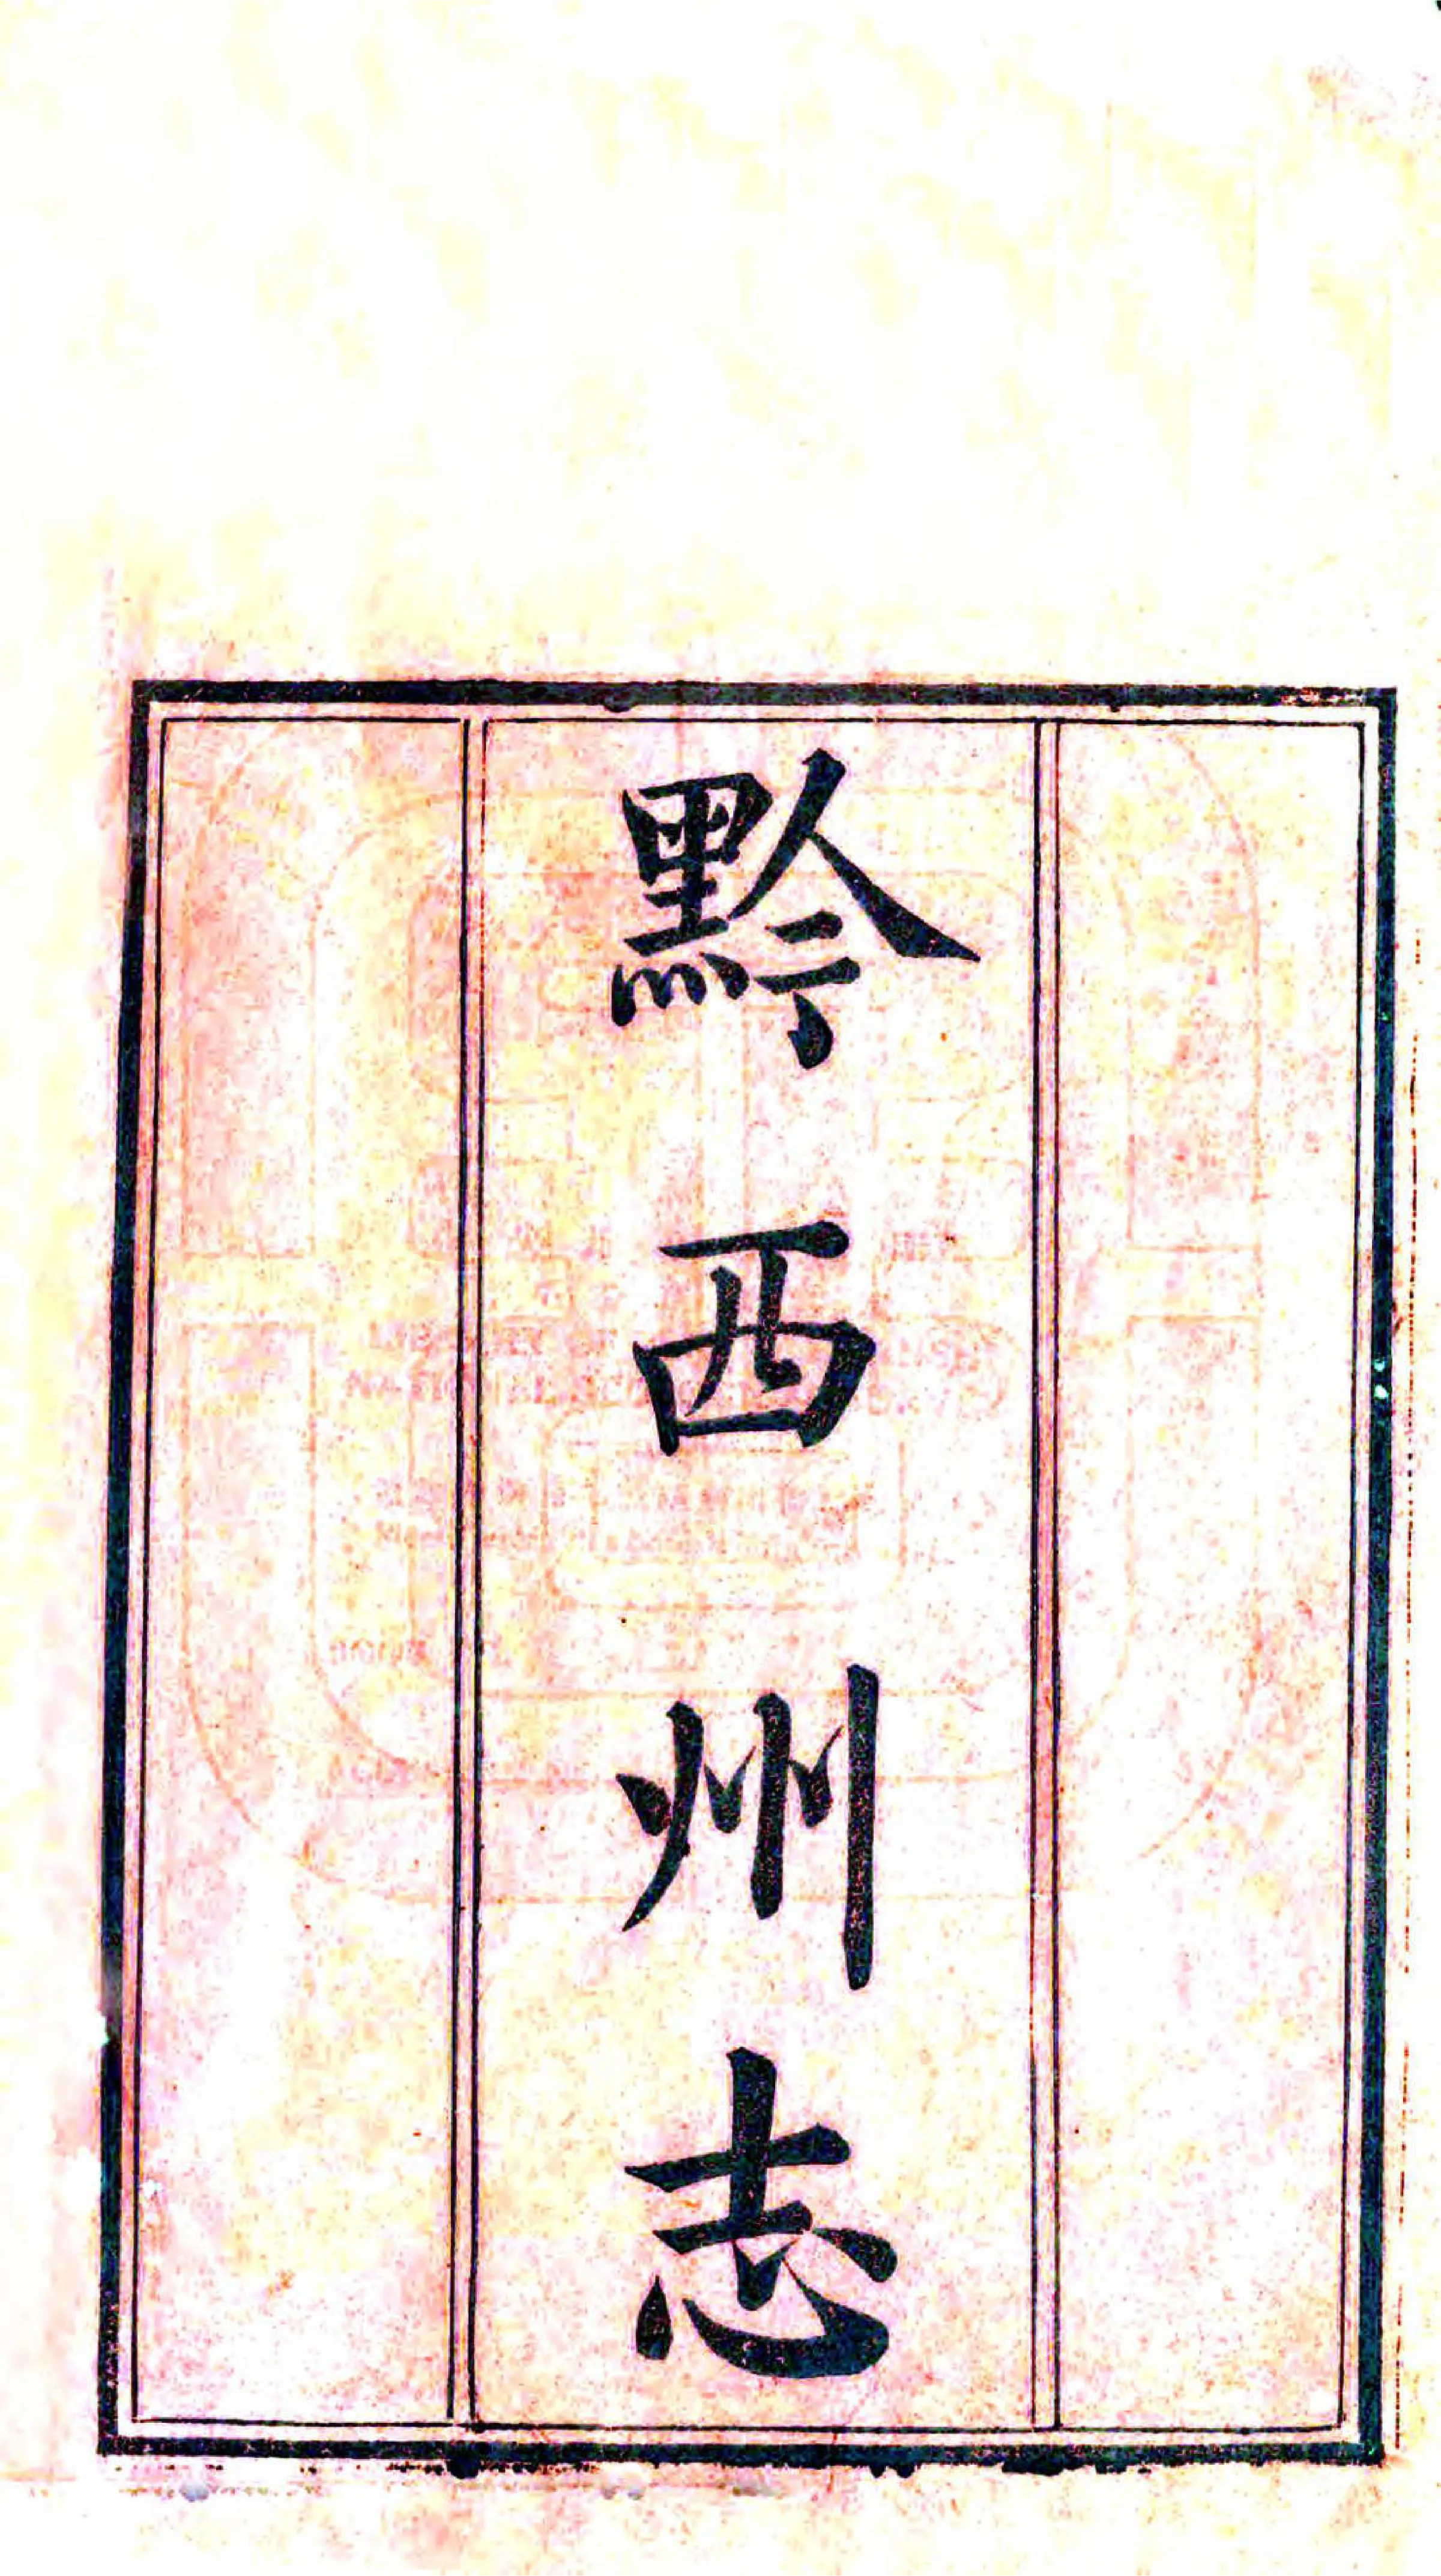 黔西州志